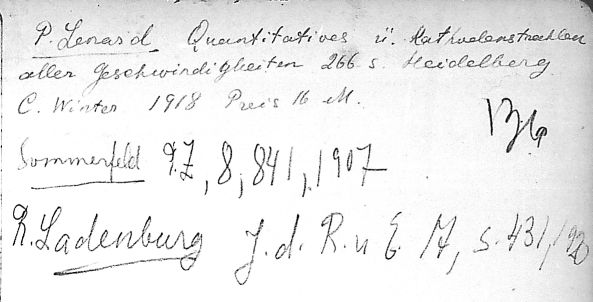 P. Lenard Quantitatives ü. Kathodenstrahlen
aller Geschwindigkeiten 266 s. Heidelberg
C. Winter 1918 Preis 16 M.
Sommerfeld P.Z, 8, 841, 1907
R. Ladenburg J. d. R. u E. 17, S. 431, 1920